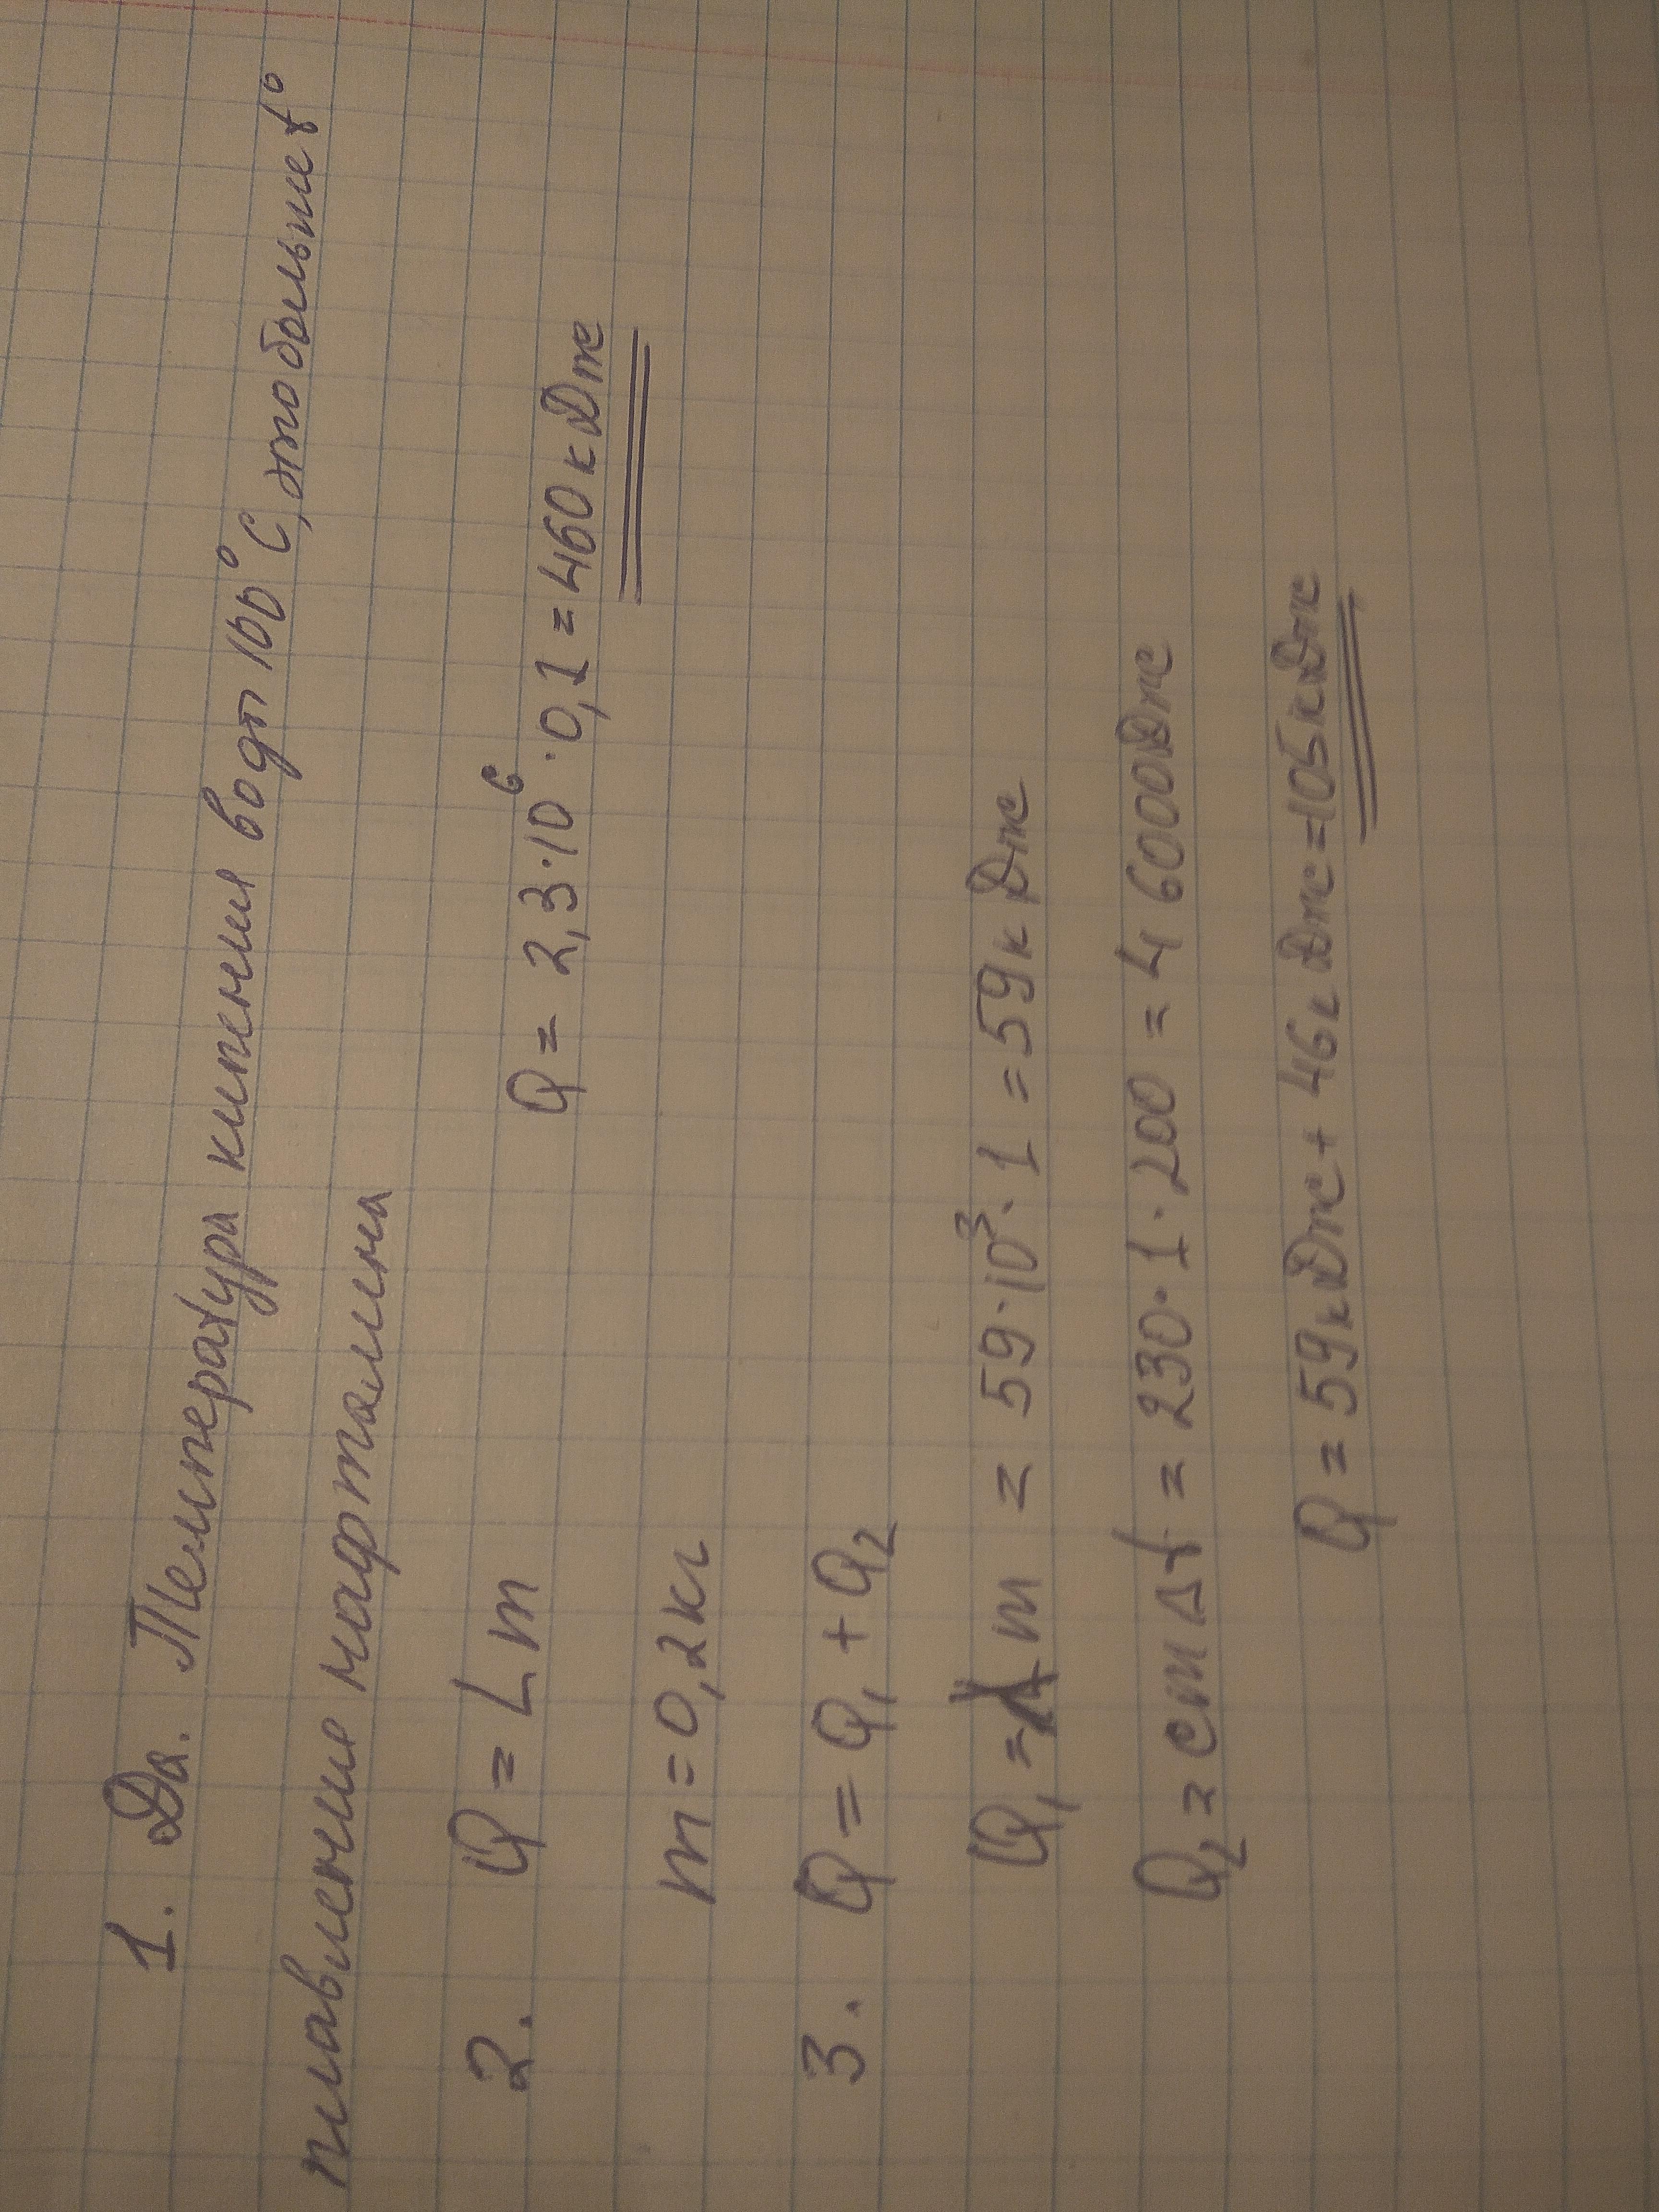 1. Да. Температура кипения воды 100°C, это больше t°
плавление нафталина
2. Q = Lm Q = 2,3·10⁶·0,1 = 460 кДж
m = 0,2 кг
3. Q = Q₁ + Q₂
Q₁ = λm = 59·10³·1 = 59 кДж
Q₂ = cmΔt = 230·1·200 = 46000 Дж
Q = 59 кДж + 46 кДж = 105 кДж